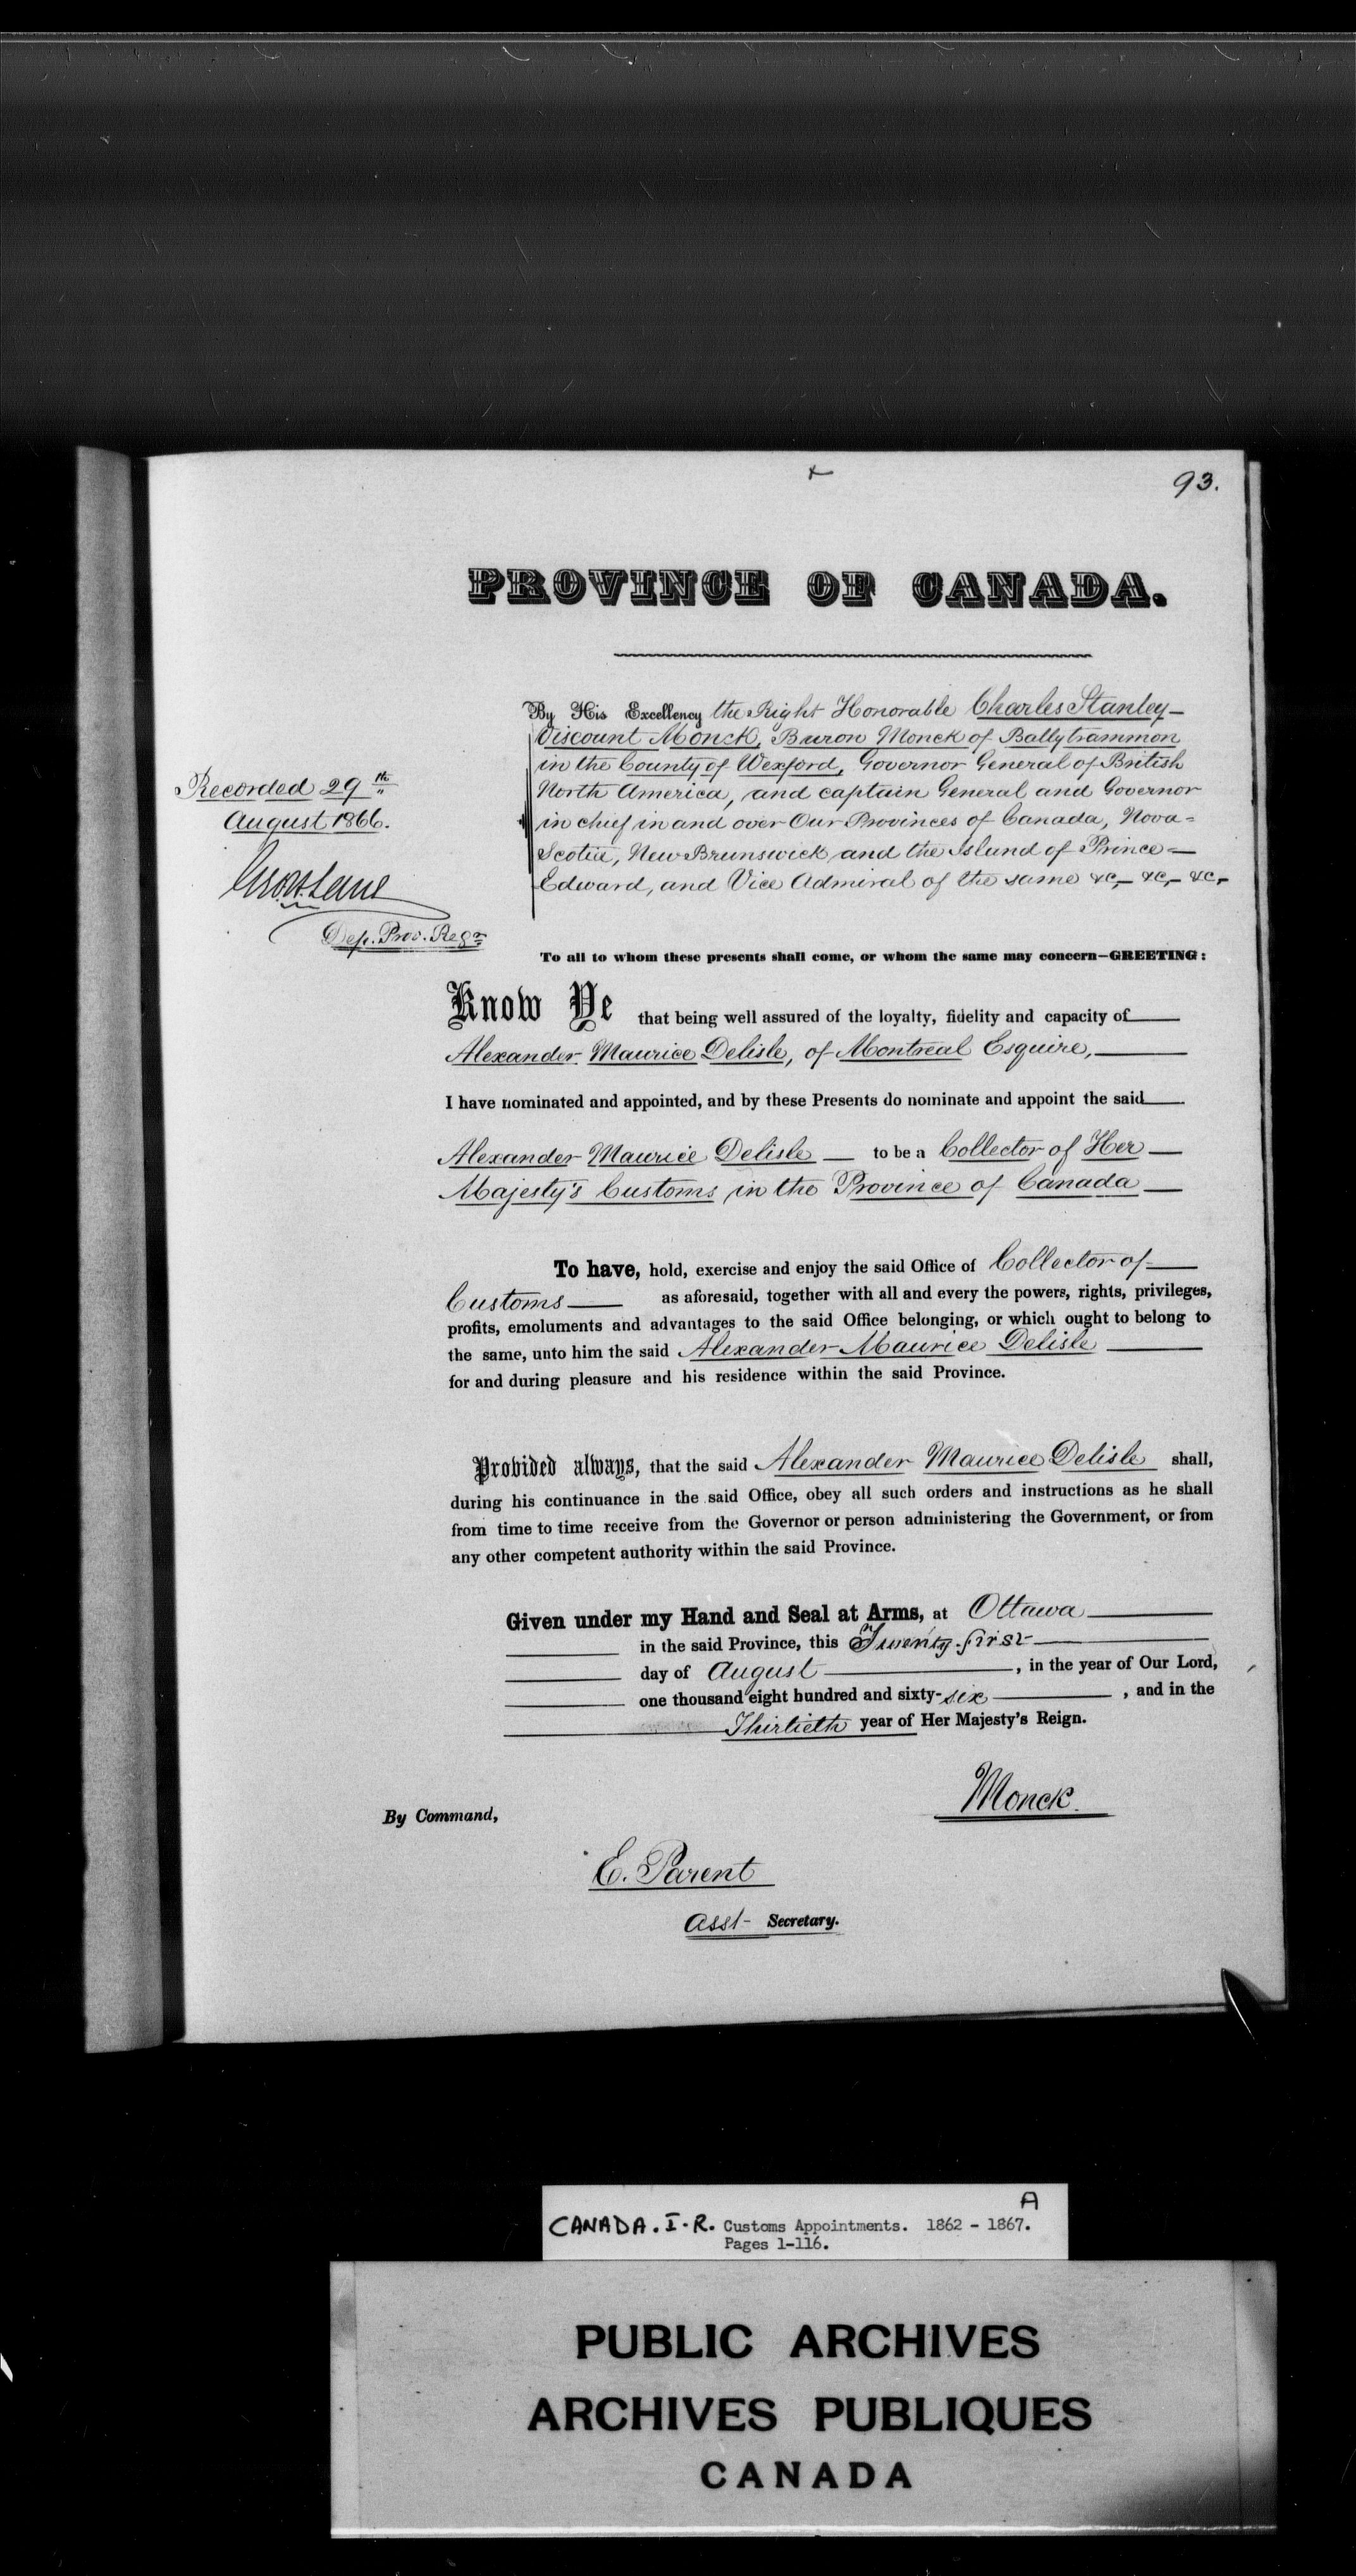 93.
PROVINCE OF CANADA.
By His Excellency the Right Honorable Charles Stanley
Viscount Monck, Baron Monck of Ballytrammon
in the County of Wexford, Governor General of British
North America, and captain General and Governor
in chief in and over Our Provinces of Canada, Nova=
Scotia, New Brunswick and the Island of Prince=
Edward, and Vice Admiral of the same &c, &c, &c,
Recorded 29th
August 1866.
Dep. Prov. Regr
To all to whom these presents shall come, or whom the same may concern—GREETING:
Know Ye that being well assured of the loyalty, fidelity and capacity of
Alexander Maurice Delisle, of Montreal Esquire,
I have nominated and appointed, and by these Presents do nominate and appoint the said
Alexander Maurice Delisle — to be a Collector of Her
Majesty's Customs in the Province of Canada
To have, hold, exercise and enjoy the said Office of Collector of
Customs as aforesaid, together with all and every the powers, rights, privileges,
profits, emoluments and advantages to the said Office belonging, or which ought to belong to
the same, unto him the said Alexander Maurice Delisle
for and during pleasure and his residence within the said Province.
Provided always, that the said Alexander Maurice Delisle shall,
during his continuance in the said Office, obey all such orders and instructions as he shall
from time to time receive from the Governor or person administering the Government, or from
any other competent authority within the said Province.
Given under my Hand and Seal at Arms, at Ottawa
in the said Province, this Twenty-first
day of August, in the year of Our Lord,
one thousand eight hundred and sixty-six, and in the
Thirtieth year of Her Majesty's Reign.
Monck.
By Command,
E. Parent
Asst- Secretary.
A
CANADA. I-R. Customs Appointments. 1862 - 1867.
Pages 1-116.
PUBLIC ARCHIVES
ARCHIVES PUBLIQUES
CANADA